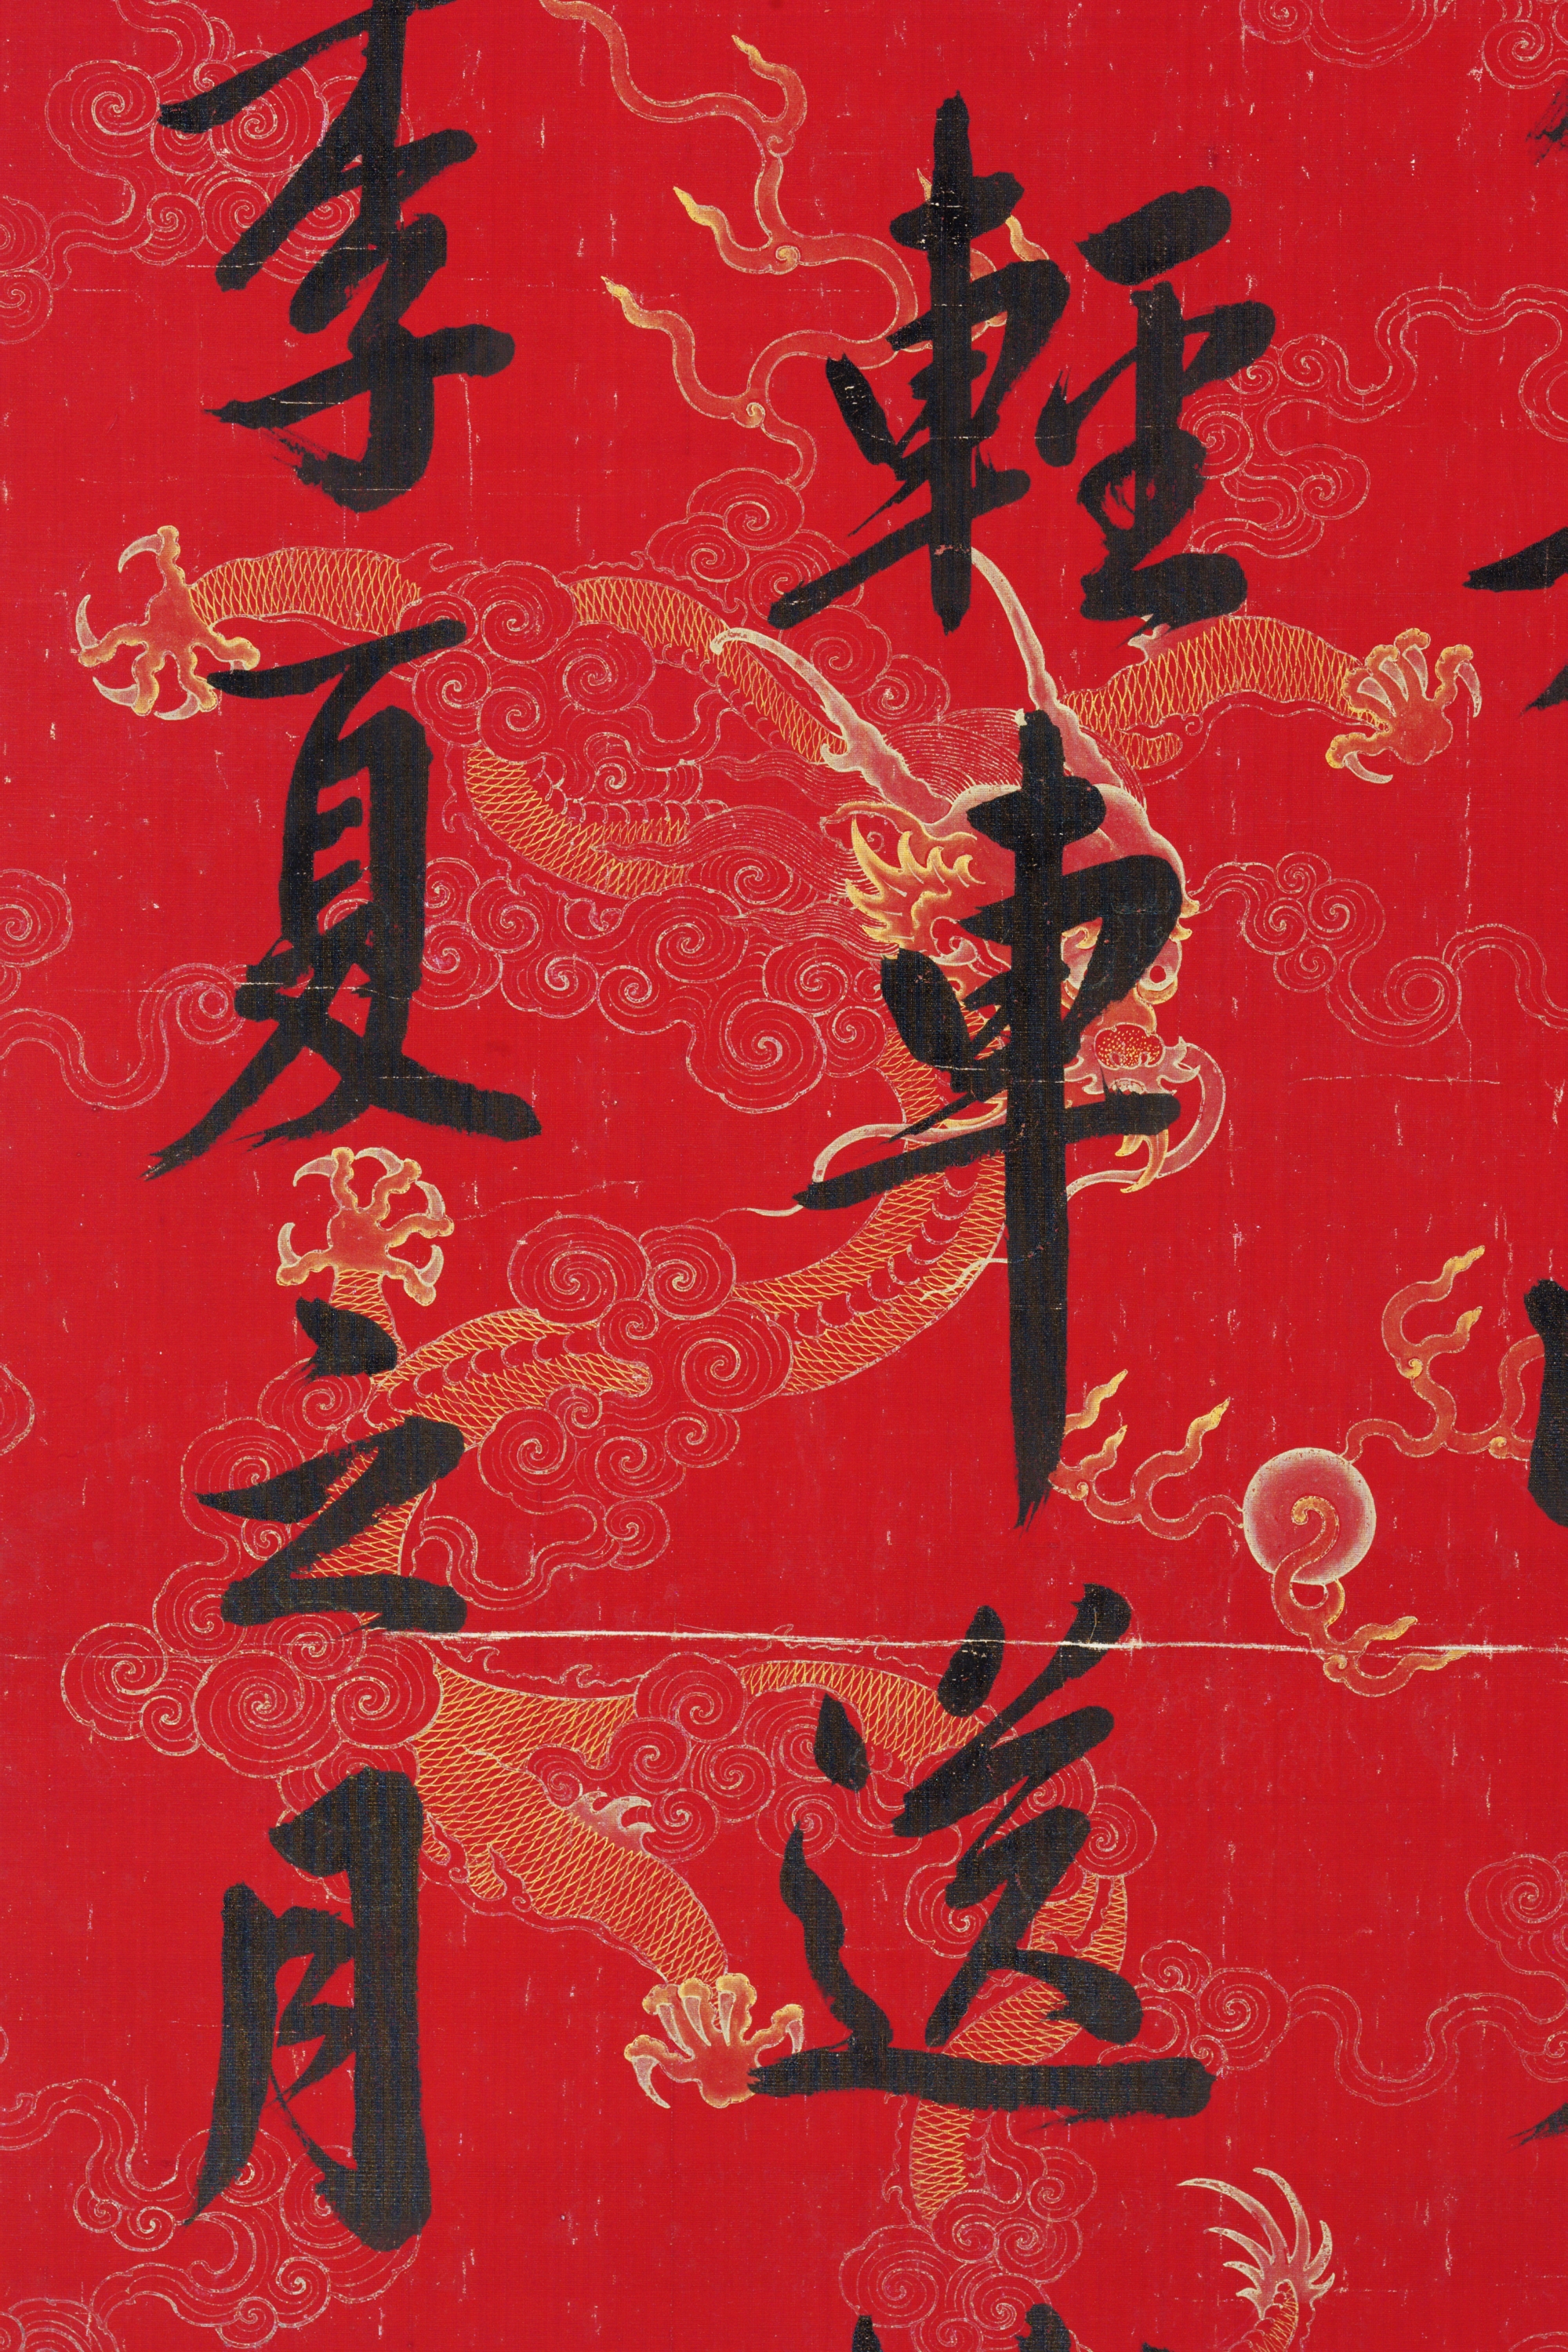 輕車送
季夏之月